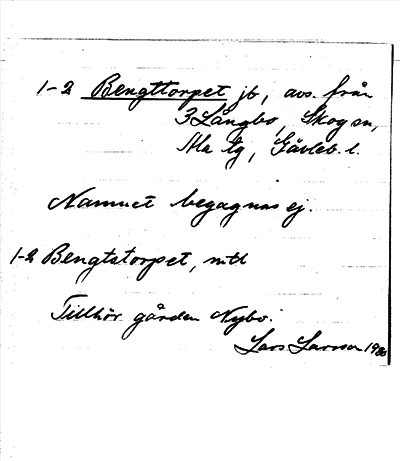 1-2 Bengttorpet jb, avs. från
3 Långbo, Skog sn,
Ala tg, Gävleb. l.
Namnet begagnas ej.
1-2 Bengtstorpet, mtl
Tillhör gården Nybo.
Lars Larsson 1980